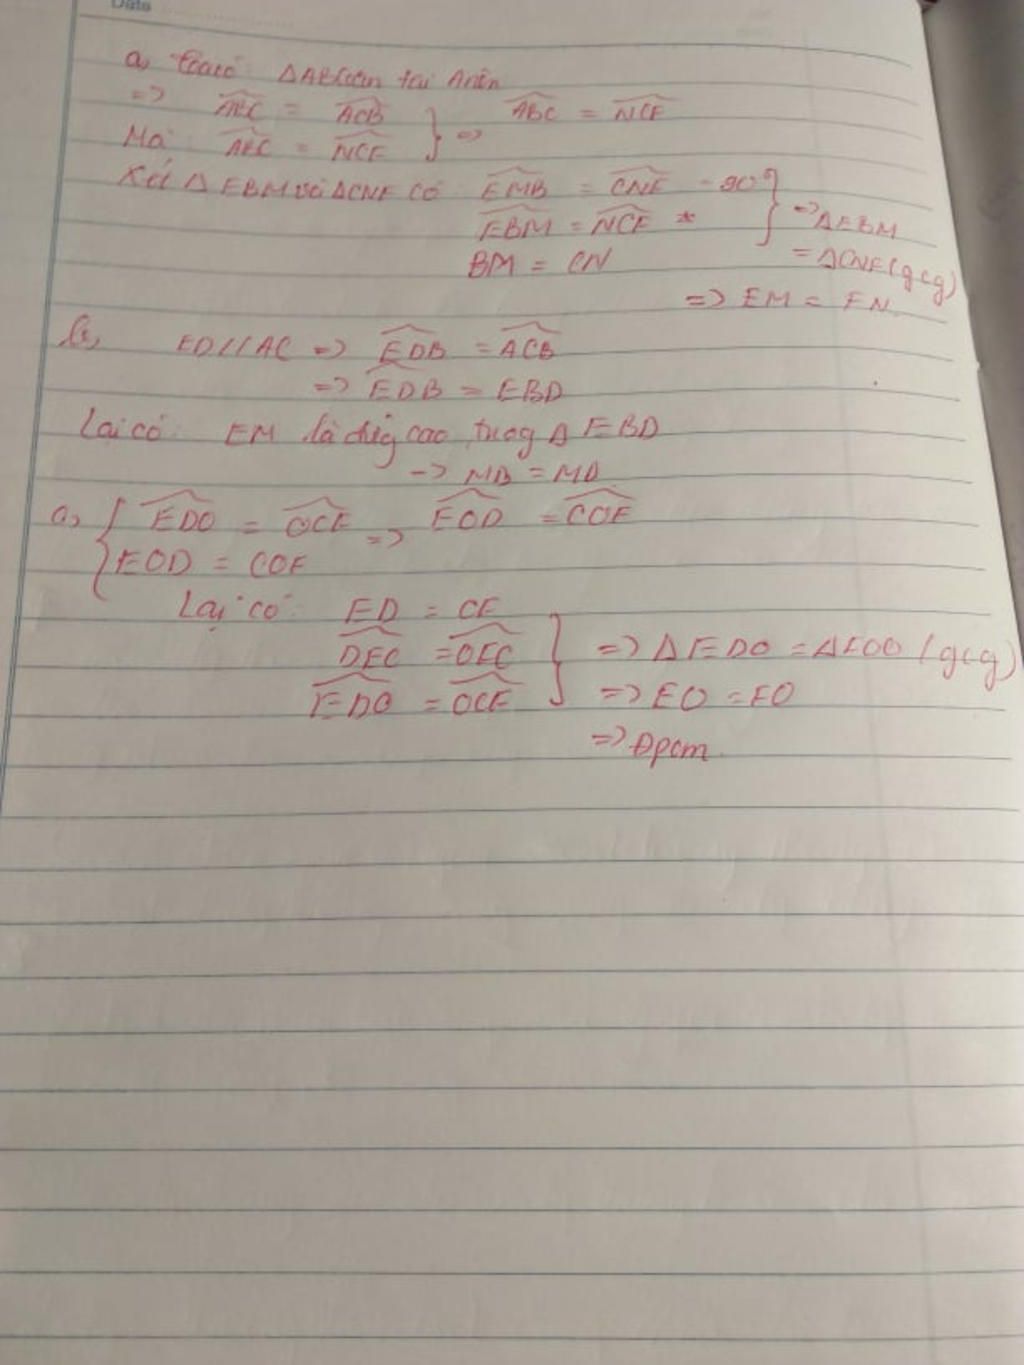 Date
a, Ta có: ΔABC cân tại A nên
=> ABC = ACB } => ABC = NCF
Mà: ABC = NCF
Xét ΔEBM và ΔCNF có EMB = CNF = 90°
EBM = NCF * } => ΔEBM
BM = CN = ΔCNF (gcg)
=> EM = FN
b, ED//AC => EDB = ACB
=> EDB = EBD
Lại có: EM là đg cao trog Δ EBD
-> MB = MD
a, { EDO = OCF => EOD = COF
EOD = COF
Lại có: ED = CF
DEO = OFC } => ΔEDO = ΔFOO (gcg)
EDO = OCF => EO = FO
=> Đpcm